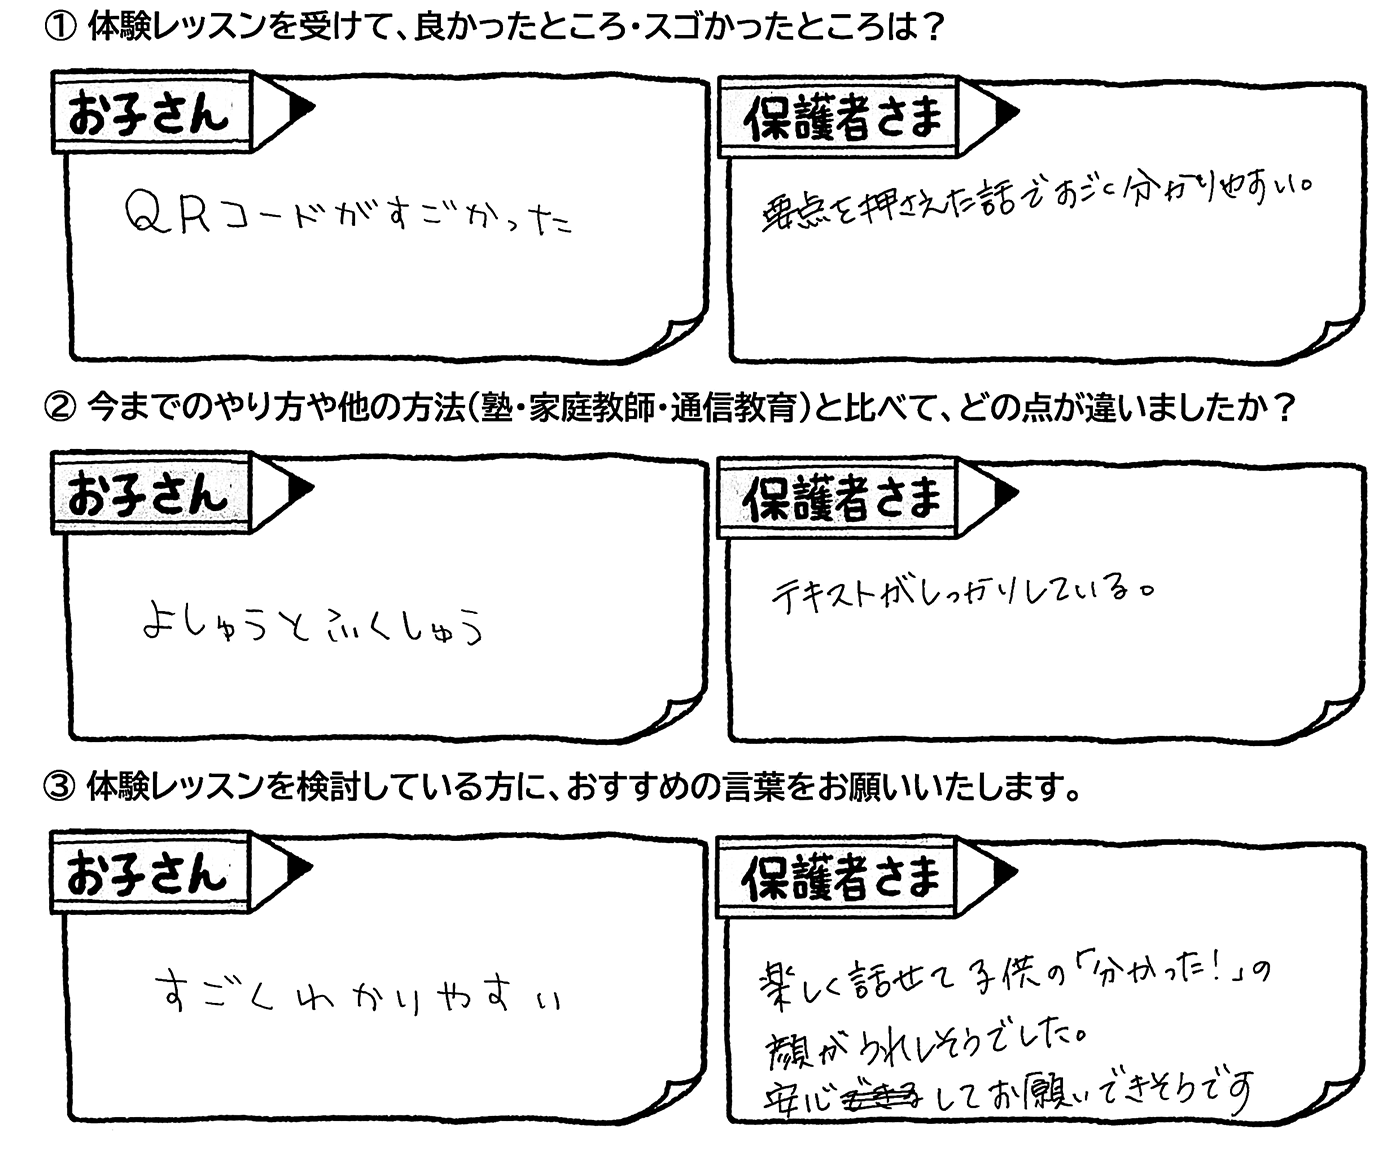 ① 体験レッスンを受けて、良かったところ・スゴかったところは？
お子さん
QRコードがすごかった
保護者さま
要点を押さえた話ですごく分かりやすい。
② 今までのやり方や他の方法(塾・家庭教師・通信教育)と比べて、どの点が違いましたか？
お子さん
よしゅうとふくしゅう
保護者さま
テキストがしっかりしている。
③ 体験レッスンを検討している方に、おすすめの言葉をお願いいたします。
お子さん
すごくわかりやすい
保護者さま
楽しく話せて子供の「分かった！」の
顔がうれしそうでした。
安心できるしてお願いできそうです